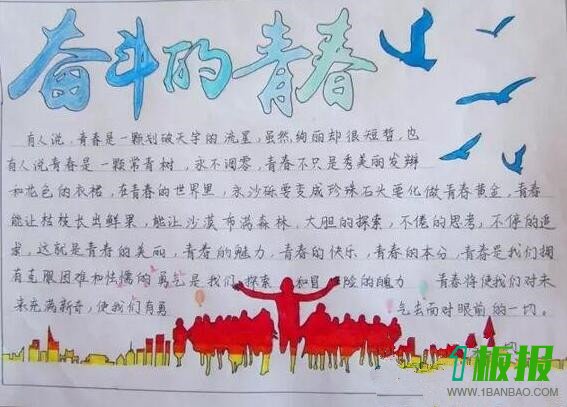 奋斗的青春
有人说,青春是一颗划破天宇的流星,虽然绚丽却很短暂,也
有人说青春是一颗常青树,永不凋零,青春不只是秀美丽发辫
和花色的衣裙,在青春的世界里,沙砾要变成珍珠石头要化做青春黄金,青春
能让枯枝长出鲜果,能让沙漠布满森林,大胆的探索,不倦的思考,不停的追
求,这就是青春的美丽,青春的魅力,青春的快乐,青春的本分,青春是我们拥
有克服困难和怯懦的勇气是我们探索和冒险的魄力 青春将使我们对未
来充满新奇,使我们有勇气去面对眼前的一切。
板报
WWW.1BANBAO.COM